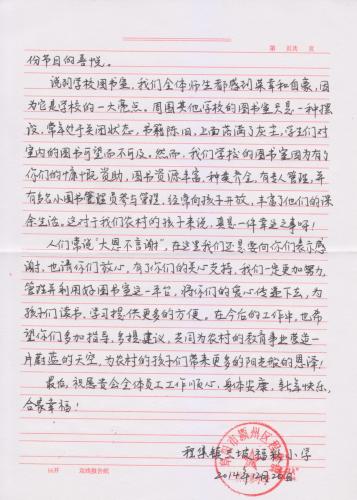 第 页共 页
份节日的喜悦。
说到学校图书室，我们全体师生都感到荣幸和自豪，因
为它是学校的一大亮点。周围其他学校的图书室只是一种摆
设，常年处于关闭状态，书籍陈旧，上面落满了灰尘，学生们对
室内的图书可望而不可及。然而，我们学校的图书室因为有了
你们的慷慨资助，图书资源丰富，种类齐全，有专人管理，并
有多名小图书管理员参与管理，经常向孩子开放，丰富了他们的课
余生活。这对于我们农村的孩子来说，真是一件幸运之事呀！
人们常说“大恩不言谢”，在这里我们还是要向你们表示感
谢，也请你们放心，有了你们的关心支持，我们一定更加努力
管理并利用好图书室这一平台，将你们的爱心传递下去，为
孩子们读书、学习提供更多的方便。在今后的工作中，也希
望你们多加指导，多提建议，共同为农村的教育事业营造一
片蔚蓝的天空，为农村的孩子们带来更多的阳光般的恩泽！
最后，祝愿贵会全体员工工作顺心，身体安康，新年快乐，
合家幸福！
程集镇 小学
2014年12月26日
16开 双线报告纸